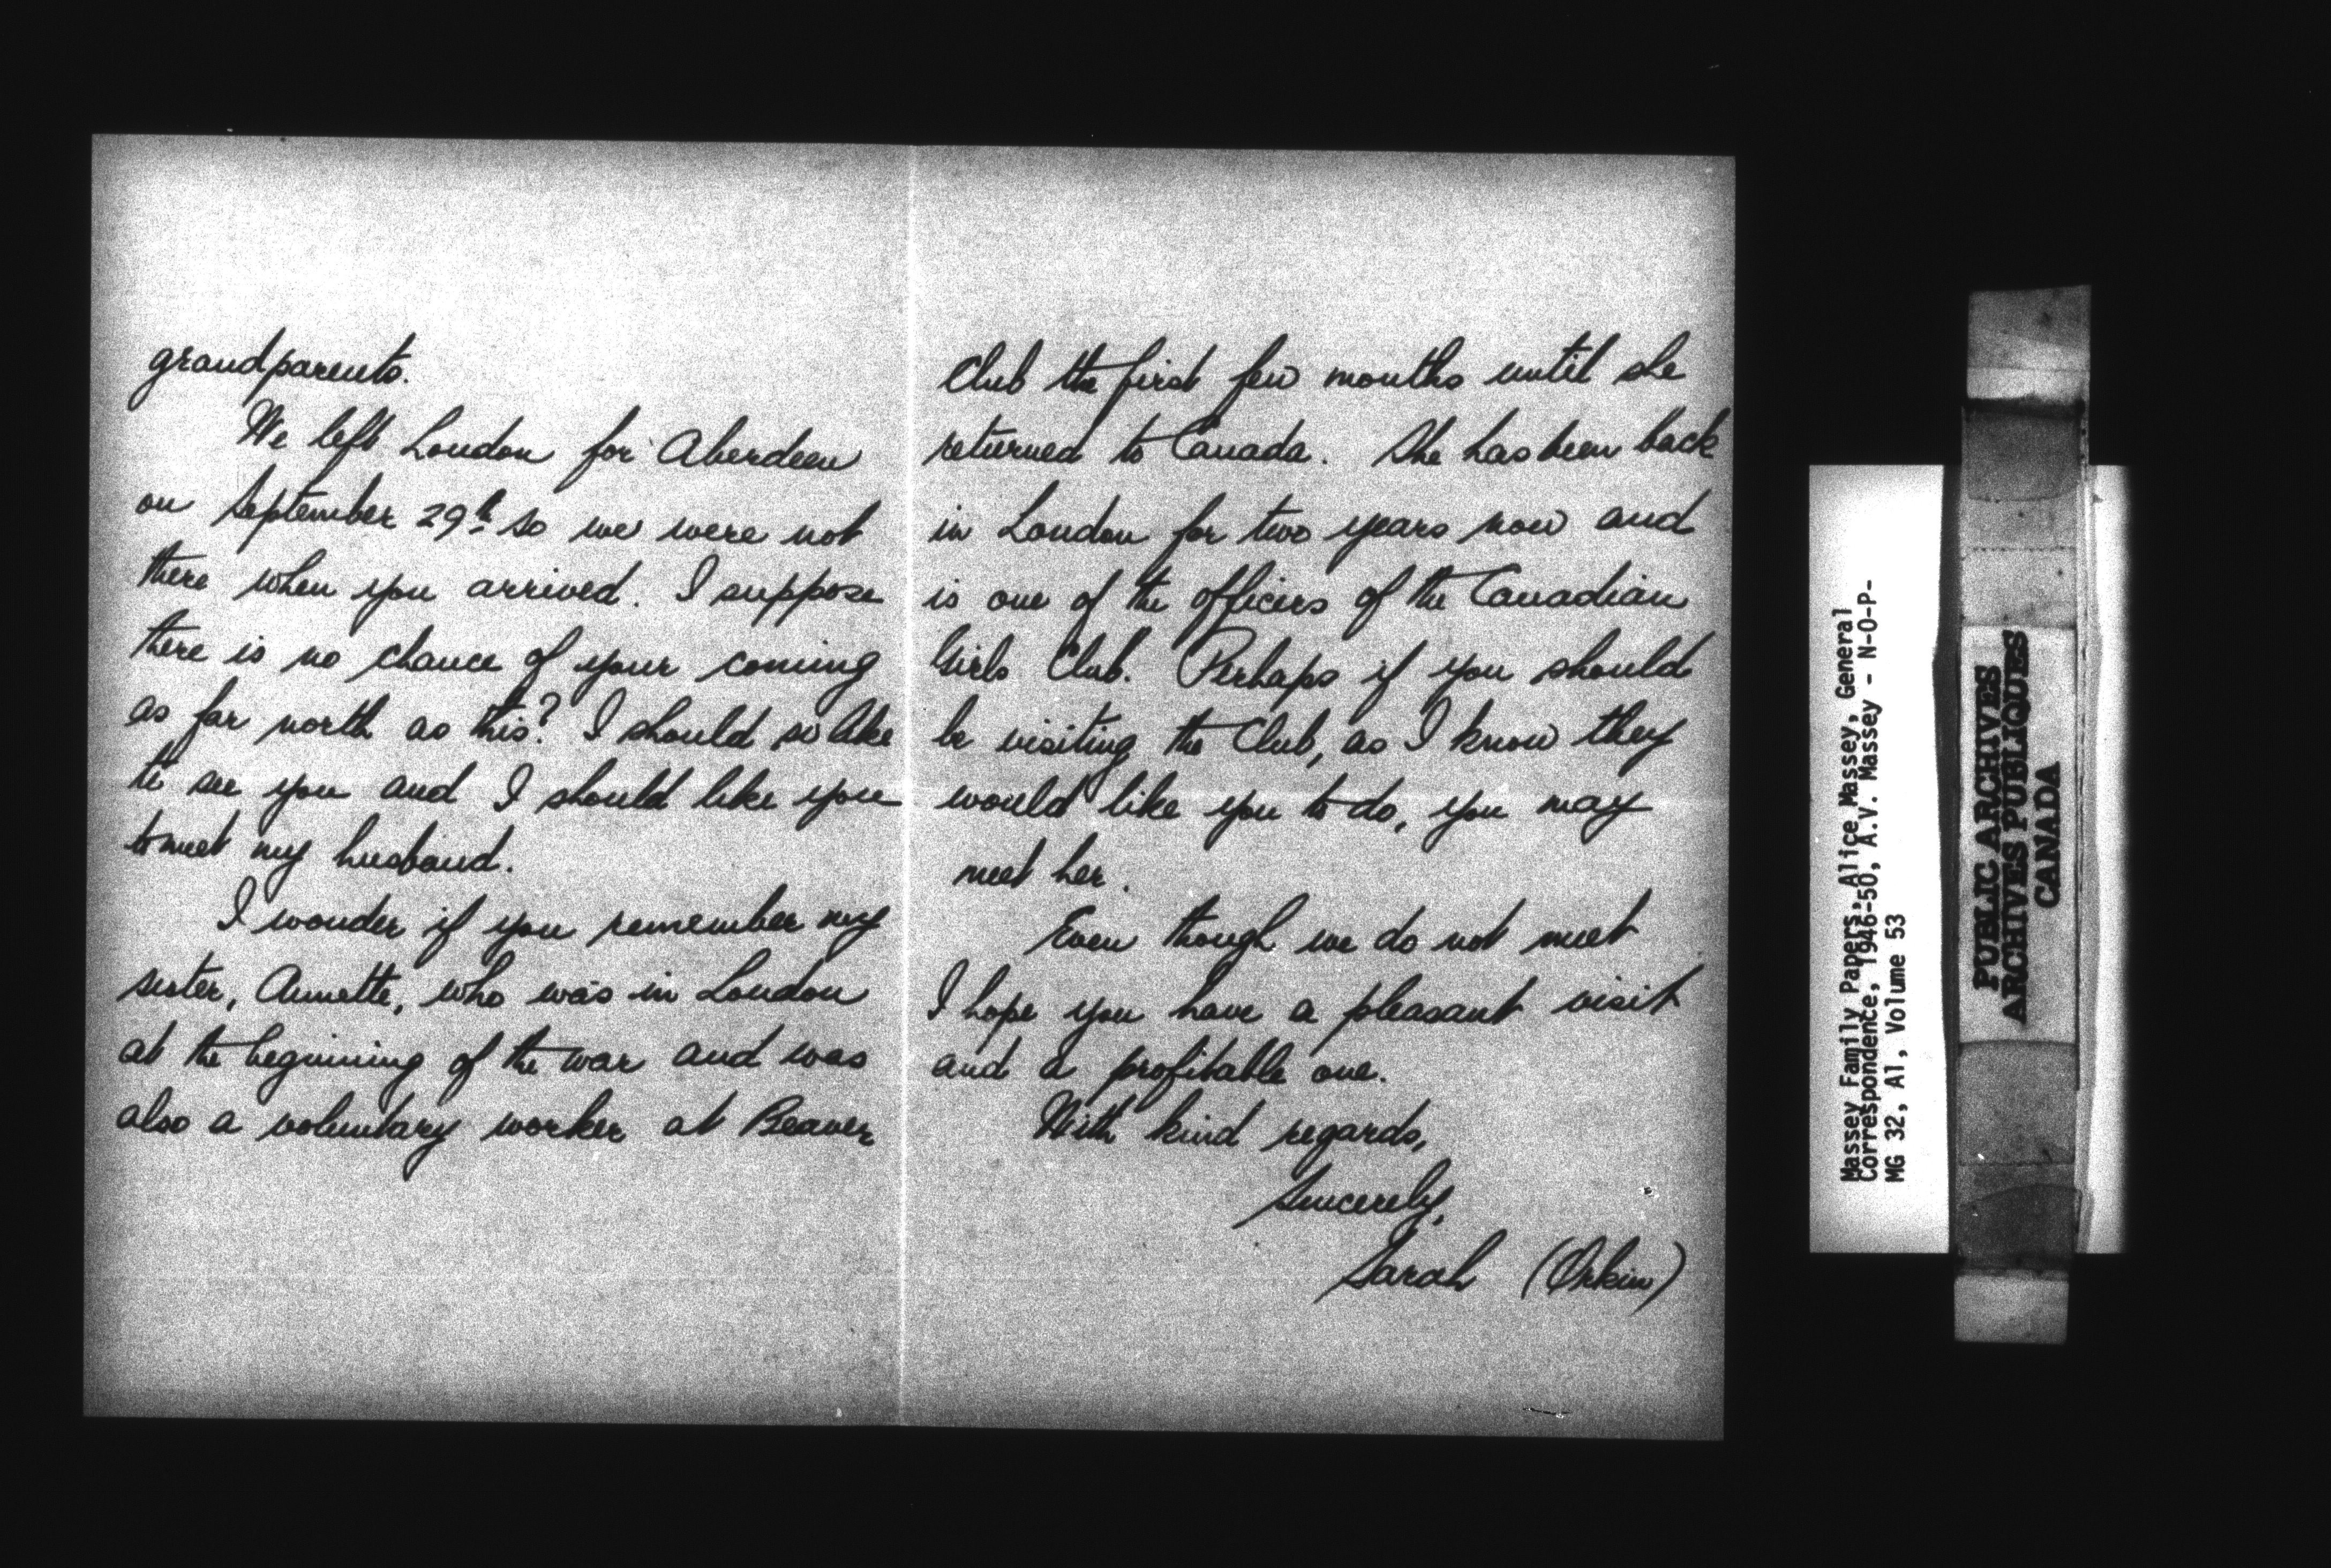 grandparents.
We left London for Aberdeen
on September 29th so we were not
there when you arrived. I suppose
there is no chance of your coming
as far north as this? I should so like
to see you and I should like you
to meet my husband.
I wonder if you remember my
sister, Annette, who was in London
at the beginning of the war and was
also a voluntary worker at Beaver
Club the first few months until she
returned to Canada. She has been back
in London for two years now and
is one of the officers of the Canadian
Girls Club. Perhaps if you should
be visiting the Club, as I know they
would like you to do, you may
meet her.
Even though we do not meet
I hope you have a pleasant visit
and a profitable one.
With kind regards,
Sincerely,
Sarah (Orkin)
Massey Family Papers, Alice Massey, General
Correspondence, 1946-50, A.V. Massey - N-O-P-
MG 32, A1, Volume 53
PUBLIC ARCHIVES
ARCHIVES PUBLIQUES
CANADA